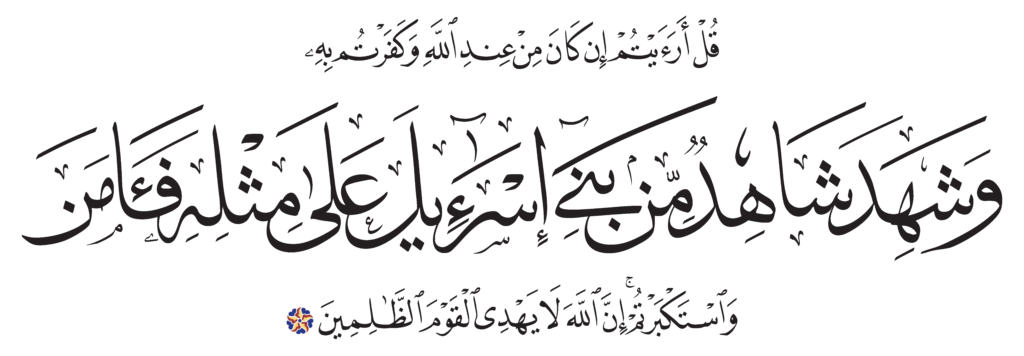 قُلْ أَرَءَيْتُمْ إِن كَانَ مِنْ عِندِ ٱللَّهِ وَكَفَرْتُم بِهِۦ
وَشَهِدَ شَاهِدٌ مِّنۢ بَنِىٓ إِسْرَٰٓءِيلَ عَلَىٰ مِثْلِهِۦ فَـَٔامَنَ
وَٱسْتَكْبَرْتُمْ ۚ إِنَّ ٱللَّهَ لَا يَهْدِى ٱلْقَوْمَ ٱلظَّـٰلِمِينَ